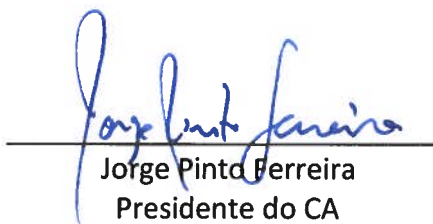 Jorge Pinto Ferreira
Jorge Pinto Ferreira
Presidente do CA